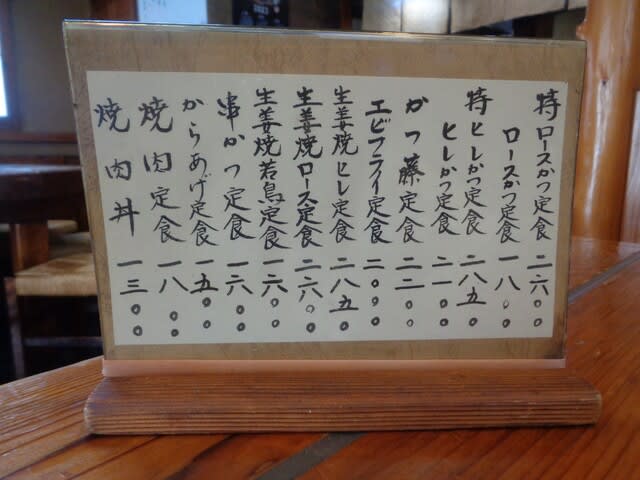 特ロースかつ定食 二六〇〇
ロースかつ定食 一八〇〇
特ヒレかつ定食 二八五〇
ヒレかつ定食 二一〇〇
かつ藤定食 二二〇〇
エビフライ定食 二〇〇〇
生姜焼ヒレ定食 二八五〇
生姜焼ロース定食 二六〇〇
生姜焼若鳥定食 一六〇〇
串かつ定食 一六〇〇
からあげ定食 一五〇〇
焼肉定食 一八〇〇
焼肉丼 一三〇〇